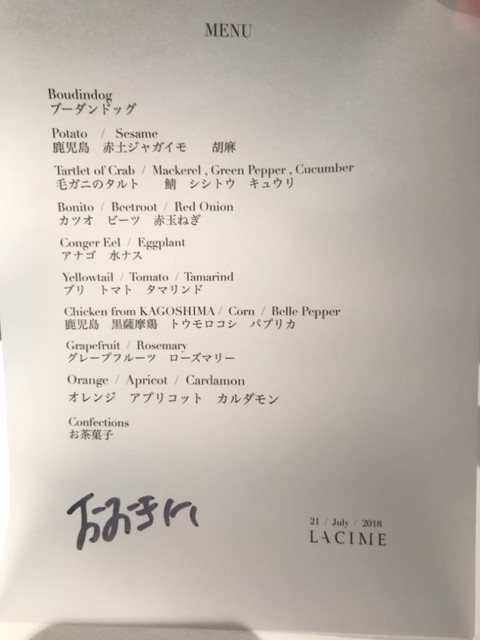 MENU
Boudindog
ブーダンドッグ
Potato / Sesame
鹿児島 赤土ジャガイモ 胡麻
Tartlet of Crab / Mackerel , Green Pepper , Cucumber
毛ガニのタルト 鯖 シシトウ キュウリ
Bonito / Beetroot / Red Onion
カツオ ビーツ 赤玉ねぎ
Conger Eel / Eggplant
アナゴ 水ナス
Yellowtail / Tomato / Tamarind
ブリ トマト タマリンド
Chicken from KAGOSHIMA / Corn / Belle Pepper
鹿児島 黒薩摩鶏 トウモロコシ パプリカ
Grapefruit / Rosemary
グレープフルーツ ローズマリー
Orange / Apricot / Cardamon
オレンジ アプリコット カルダモン
Confections
お茶菓子
おおきに
21 / July / 2018
LACIME